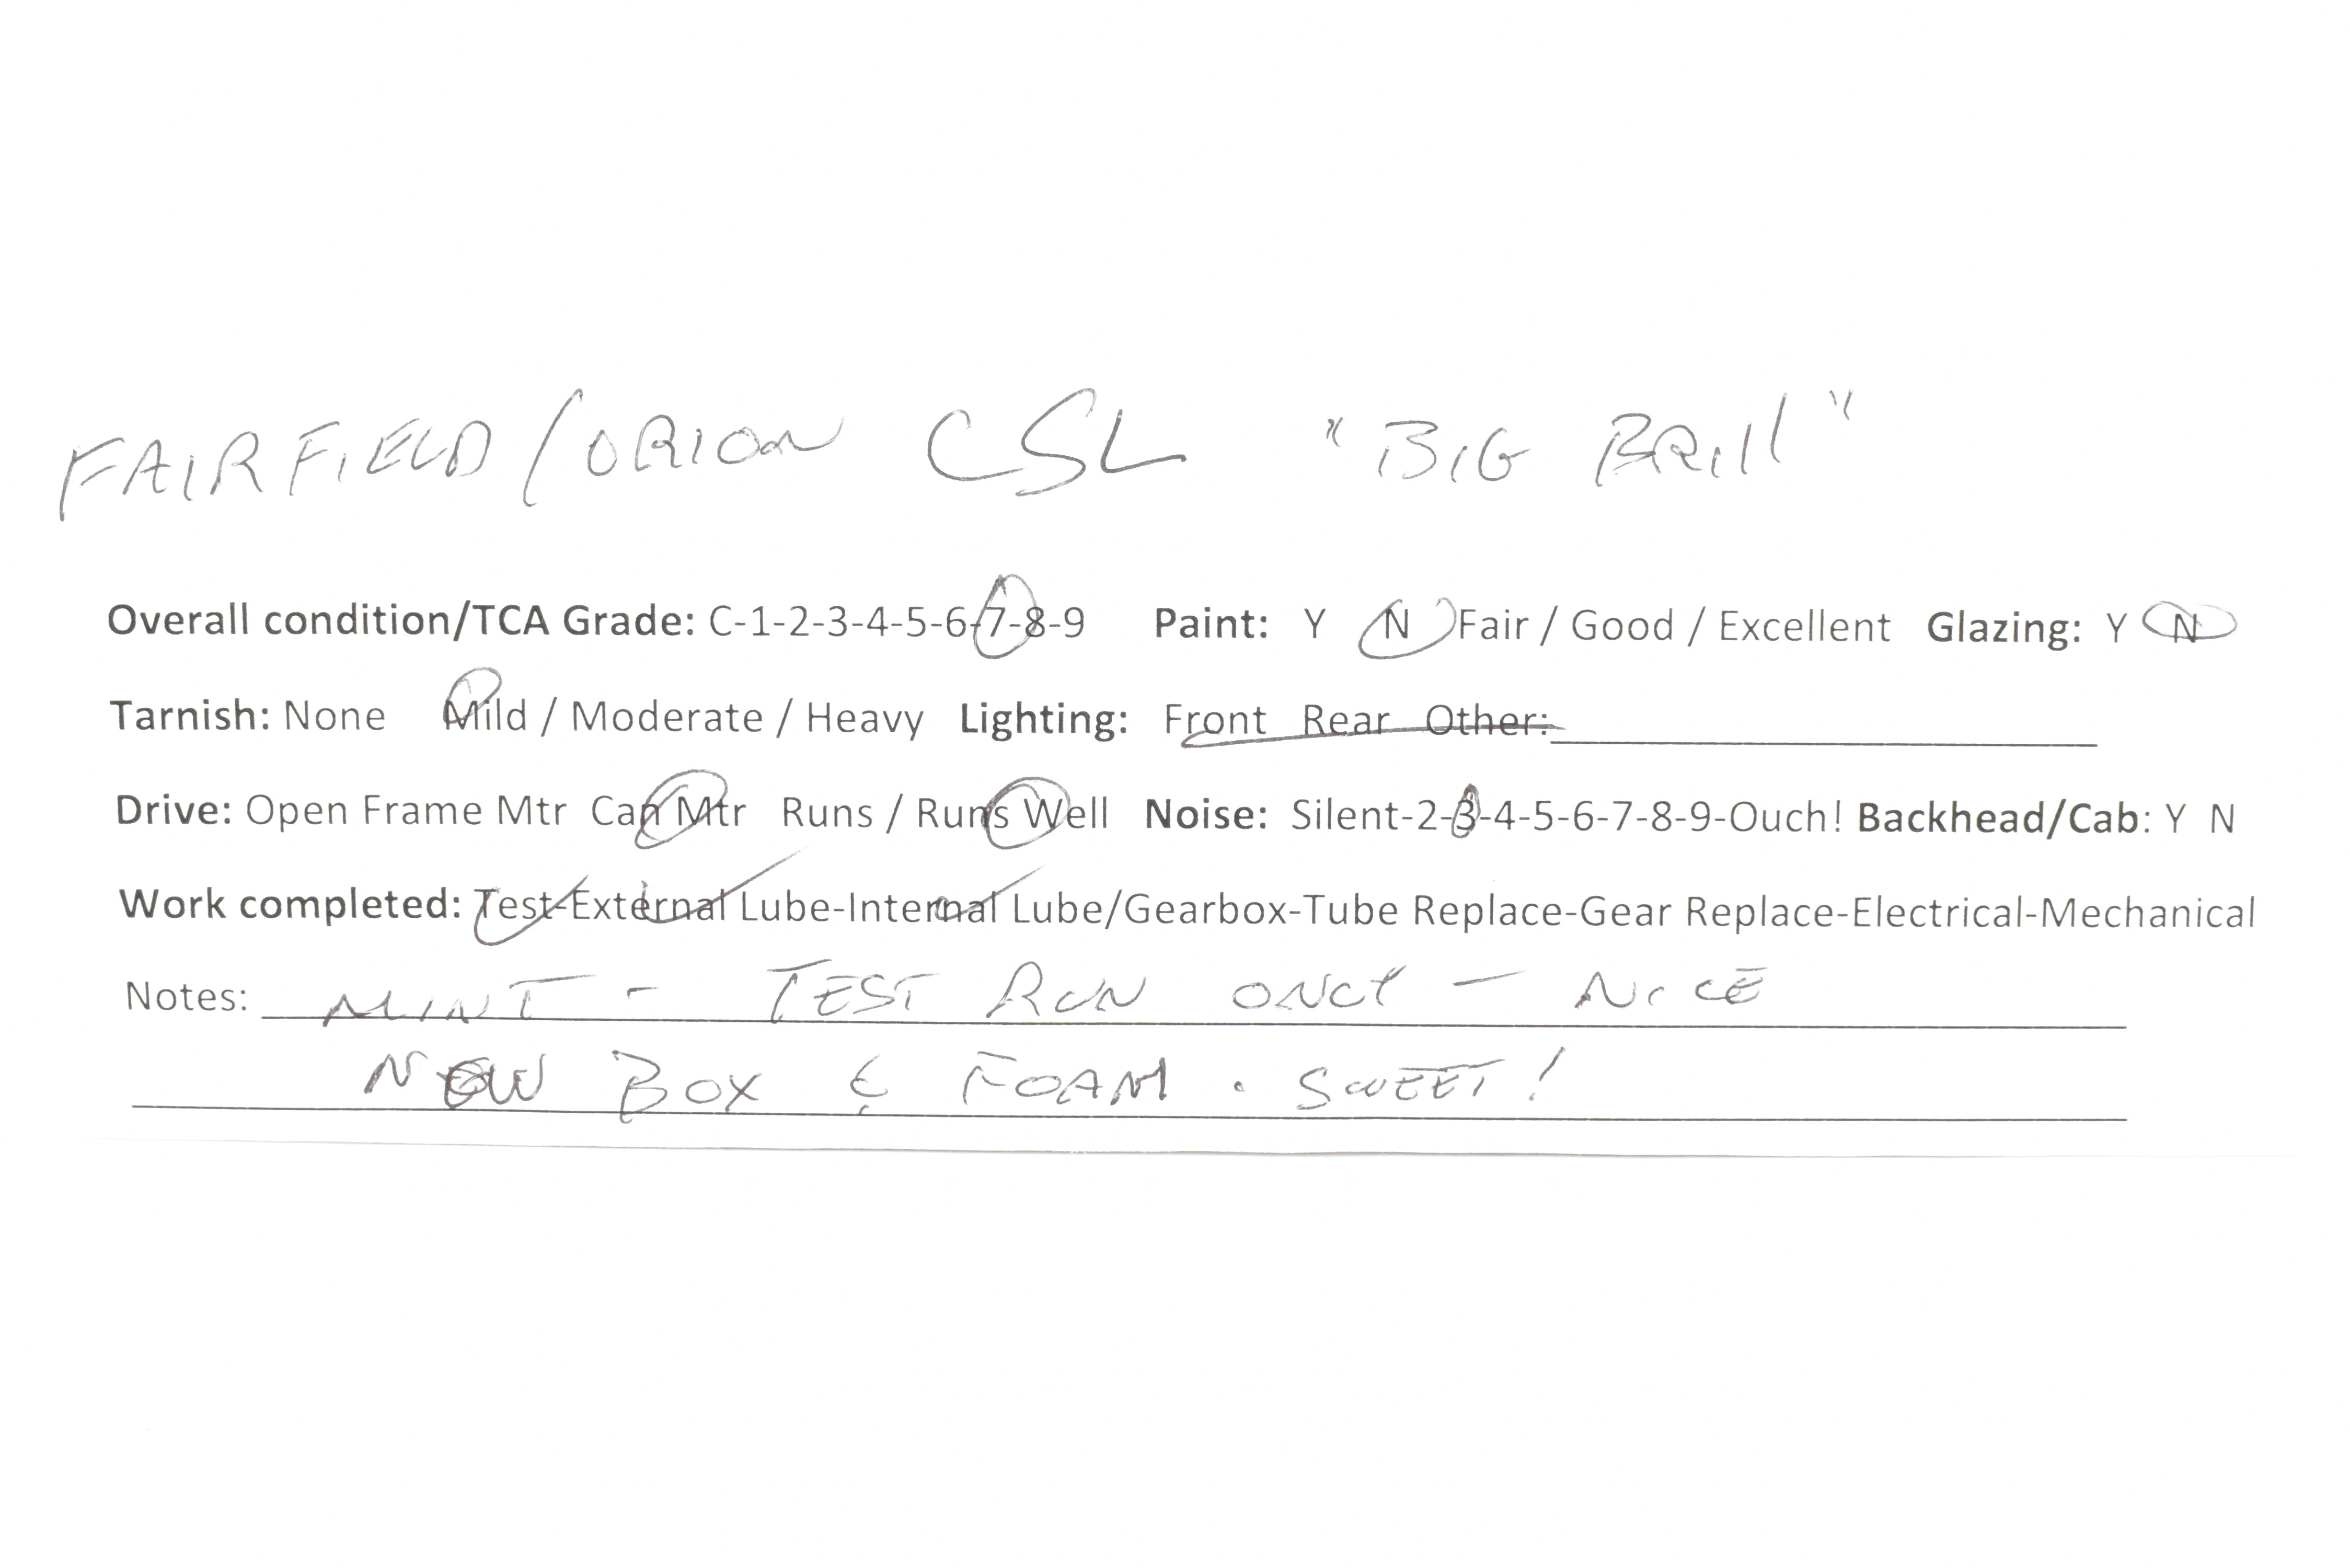 FAIRFIELD/ORION CSL "BIG BRill"
Overall condition/TCA Grade: C-1-2-3-4-5-6-7-8-9 Paint: Y N Fair / Good / Excellent Glazing: Y N
Tarnish: None Mild / Moderate / Heavy Lighting: Front Rear Other:
Drive: Open Frame Mtr Can Mtr Runs / Runs Well Noise: Silent-2-3-4-5-6-7-8-9-Ouch! Backhead/Cab: Y N
Work completed: Test-External Lube-Internal Lube/Gearbox-Tube Replace-Gear Replace-Electrical-Mechanical
Notes: MINT - TEST RUN ONLY - NICE
NEW BOX & FOAM . SWEET!